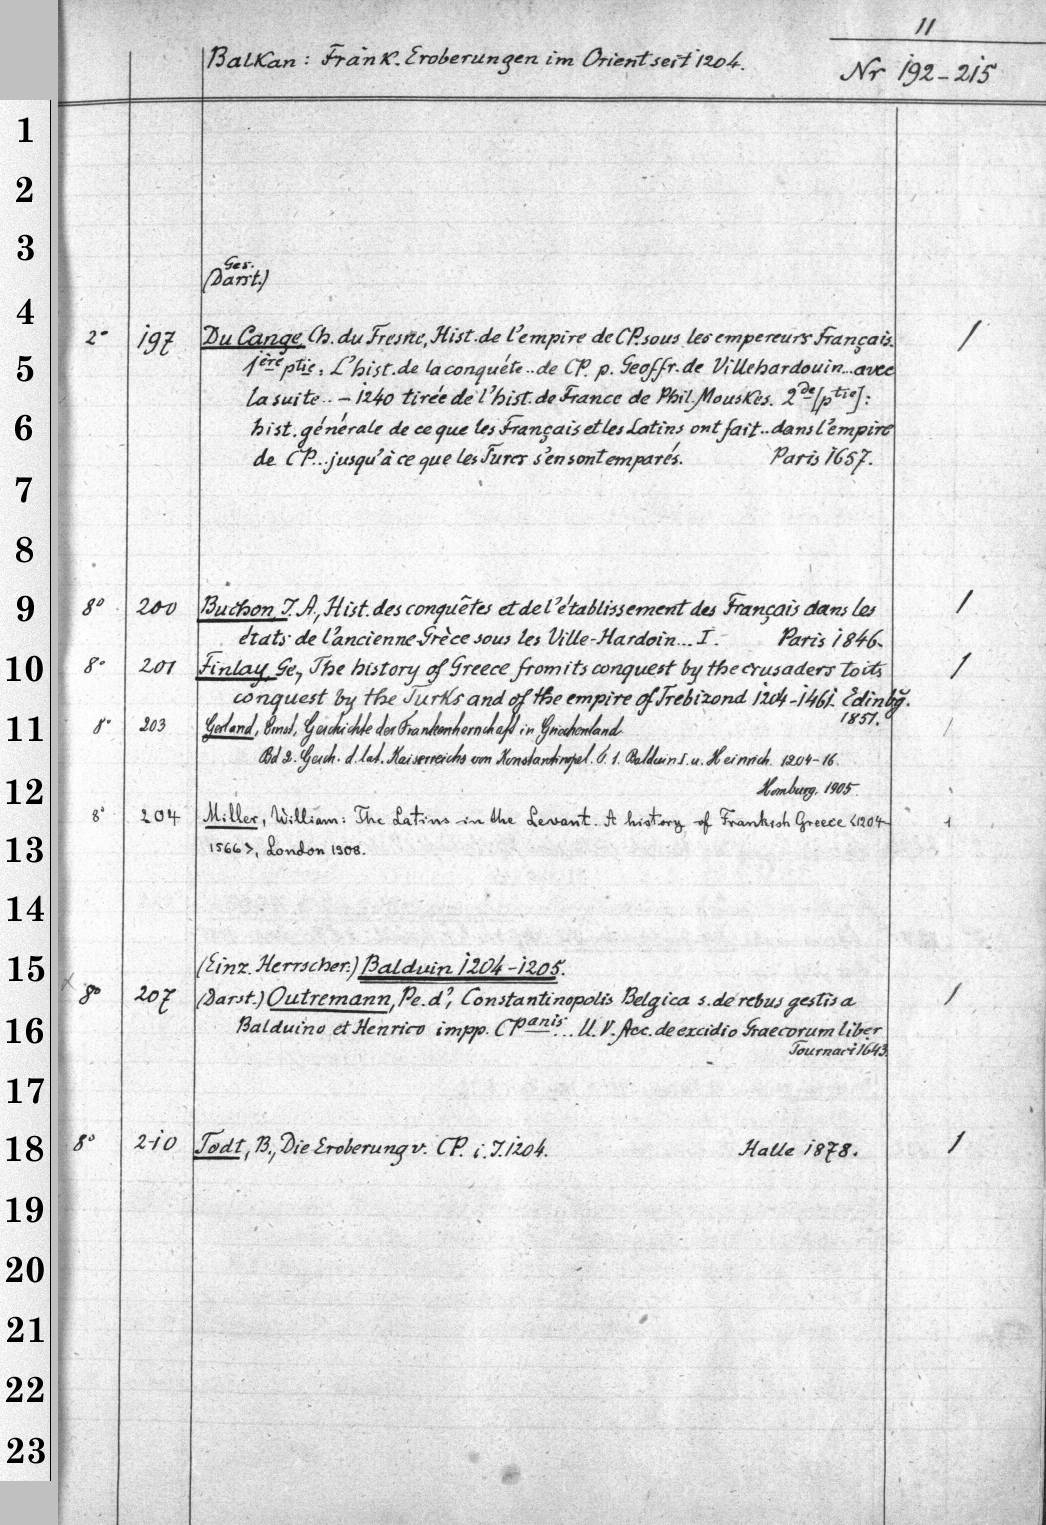 11
Balkan: Fränk. Eroberungen im Orient seit 1204.
Nr 192-215
1
2
3
Ges.
(Darst.)
4
2° 197 Du Cange, Ch. du Fresne, Hist. de l'empire de CP. sous les empereurs Français. 1
5
1ère ptie: L'hist. de la conquéte .. de CP. p. Geoffr. de Villehardouin .. avec
la suite .. – 1240 tirée de l'hist. de France de Phil. Mouskes. 2de [ptie]:
6
hist. générale de ce que les Français et les Latins ont fait .. dans l'empire
de CP... jusqu'à ce que les Turcs s'en sont emparés. Paris 1657.
7
8
9
8° 200 Buchon, J. A., Hist. des conquêtes et de l'établissement des Français dans les 1
états de l'ancienne Grèce sous les Ville-Hardoin ... I. Paris 1846.
10
8° 201 Finlay, Ge, The history of Greece from its conquest by the crusaders to its 1
conquest by the Turks and of the empire of Trebizond 1204-1461. Edinbg.
1851.
11
8° 203 Gerland, Ernst, Geschichte der Frankenherrschaft in Griechenland 1
Bd 2. Gesch. d. lat. Kaiserreichs von Konstantinopel. 1. Balduin I. u. Heinrich. 1204-16.
12
Homburg. 1905.
8° 204 Miller, William: The Latins in the Levant. A history of Frankish Greece <1204- 1
13
1566>, London 1908.
14
15
(Einz. Herrscher:) Balduin 1204-1205.
x 8° 207 (Darst.) Outremann, Pe. d', Constantinopolis Belgica s. de rebus gestis a 1
16
Balduino et Henrico impp. CPanis ... ll. V. Acc. de excidio Graecorum liber
Tournaci 1643.
17
18
8° 210 Todt, B., Die Eroberung v. CP. i. J. 1204. Halle 1878. 1
19
20
21
22
23